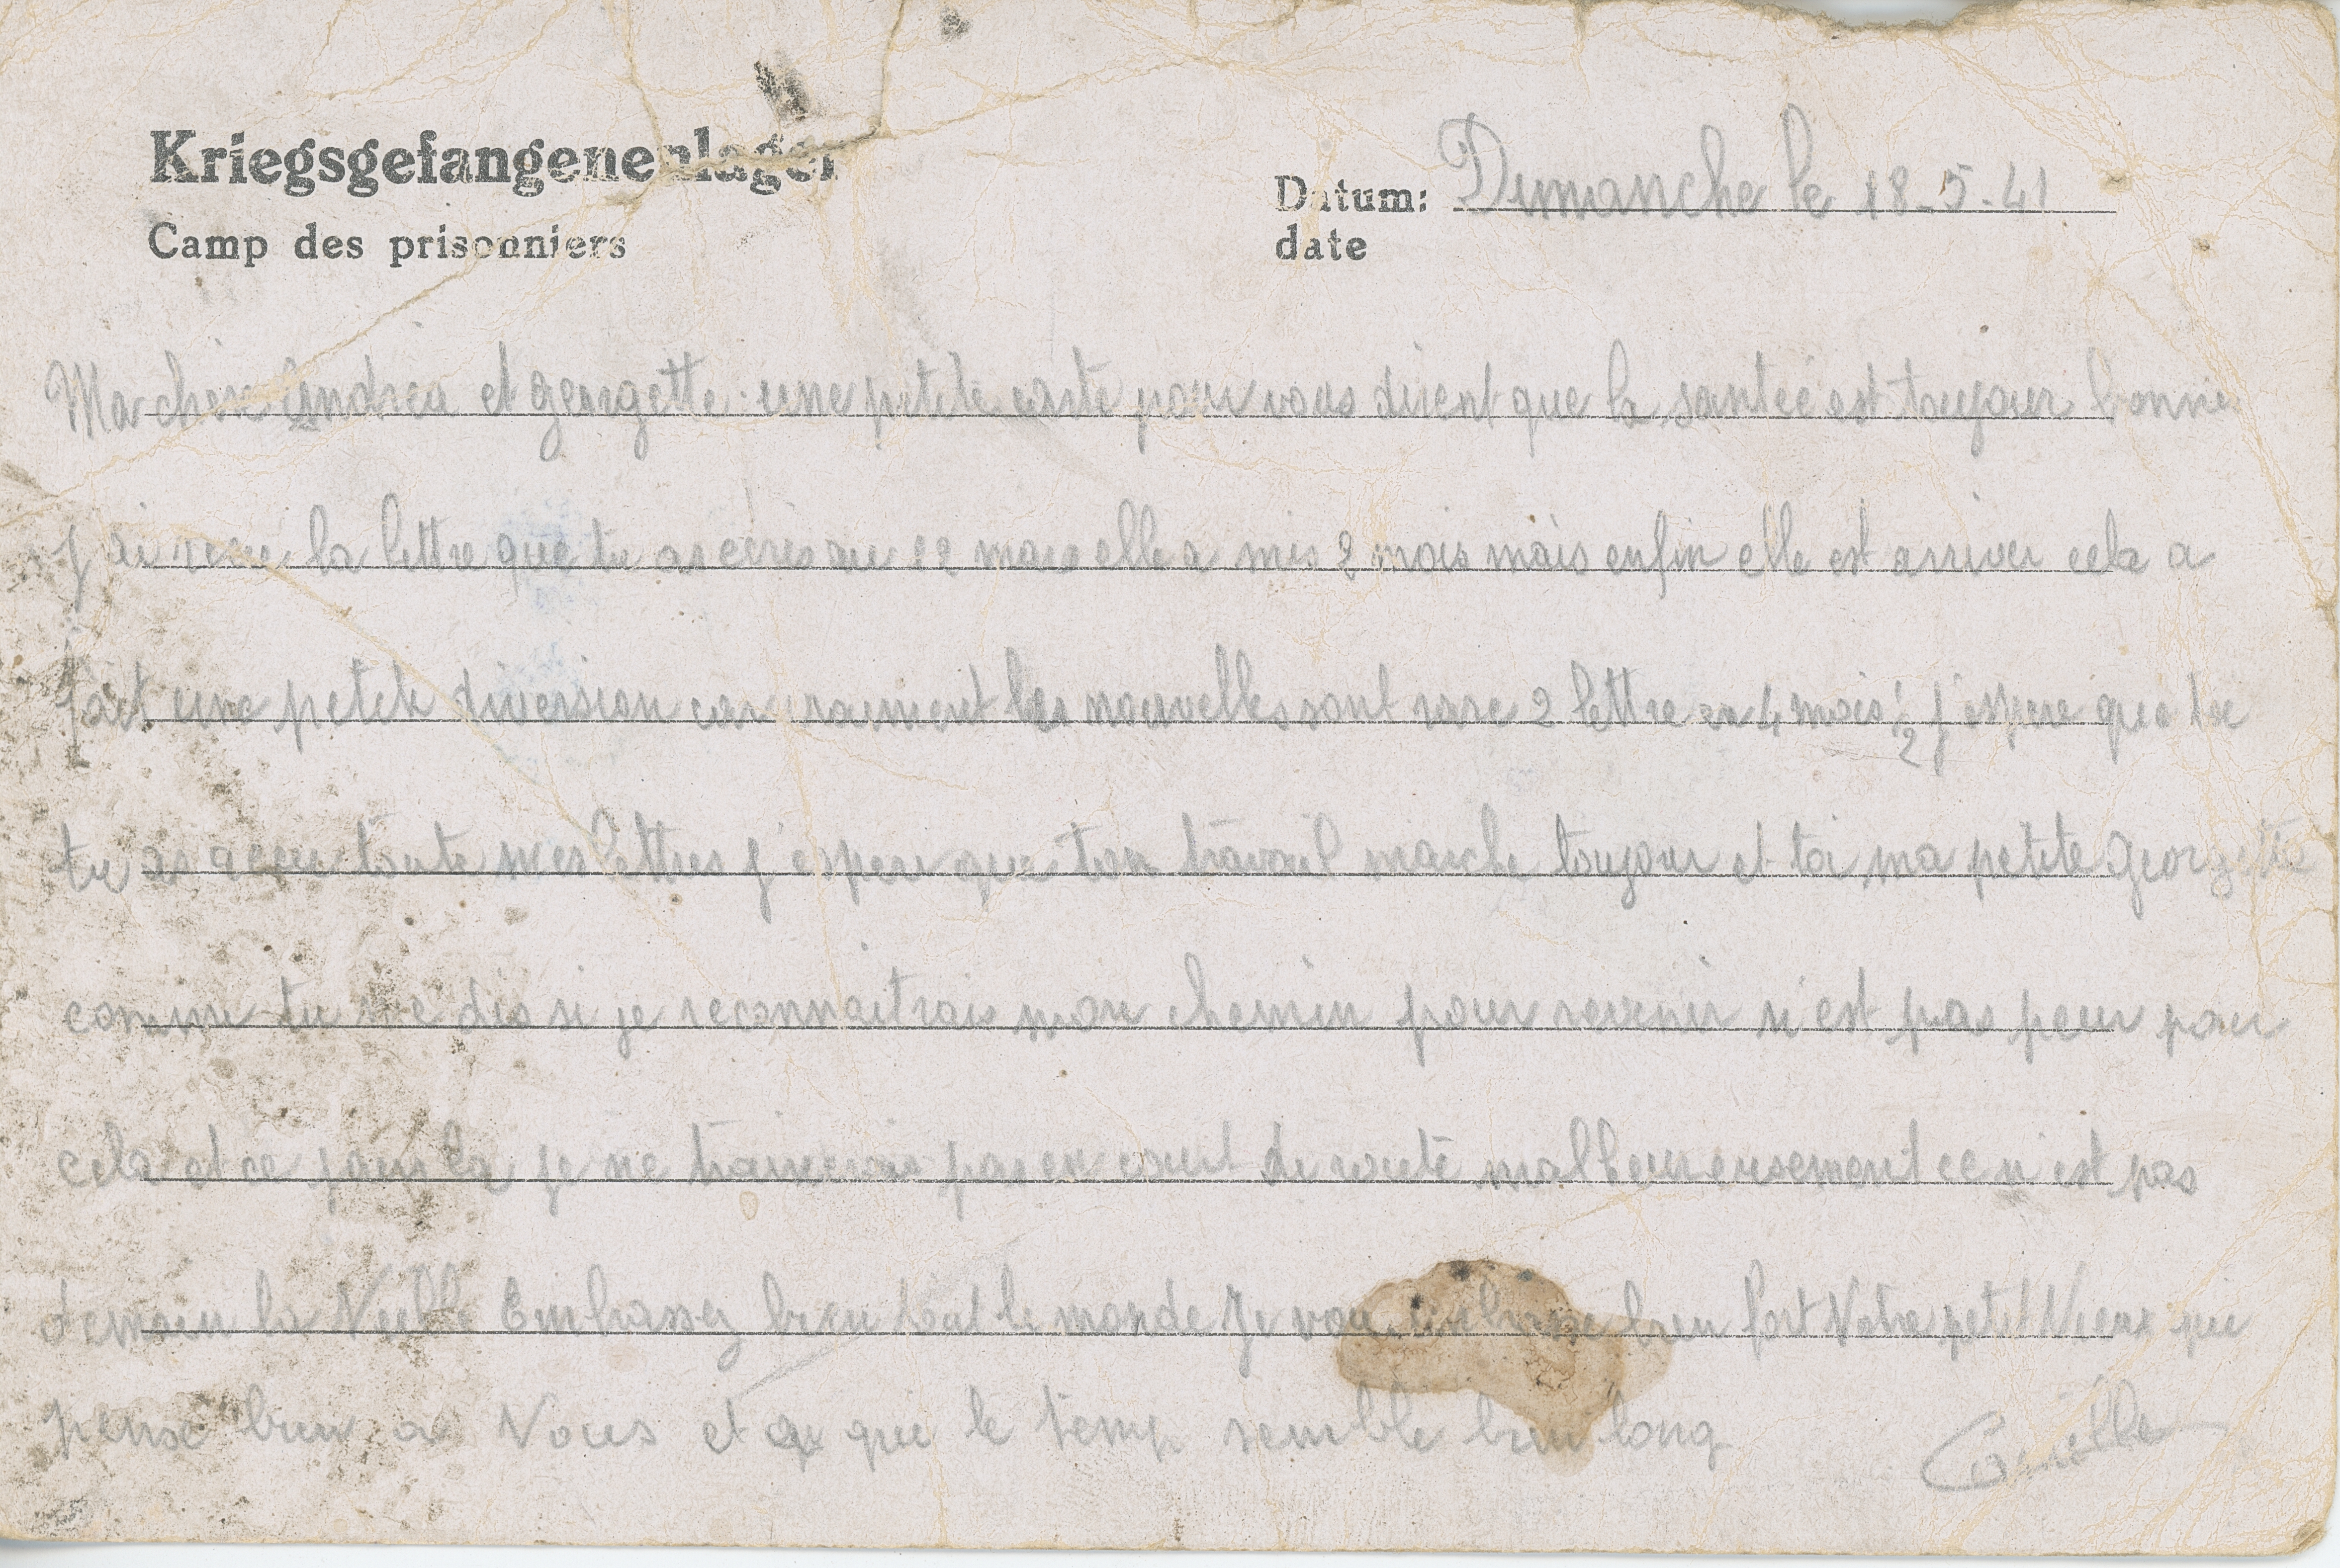 Kriegsgefangenenlager
Camp des prisonniers
Datum: Dimanche le 18-5-41
date
Ma chère Andréa et georgette une petite carte pour vous dirent que la santée est toujour bonne
j ai recu la lettre que tu as écris au 22 mars elle a mis 2 mois mais enfin elle est arriver cela a
fait une petite diversion car vraiment les nouvelles sont rare 2 lettre en 4 mois 1/2 j'espere que toi
tu as recu toute mes lettres j'espere que ton travail marche toujour et toi ma petite georgette
comme tu me dis si je reconnaitrais mon chemin pour revenir n'est pas peur pour
cela et ce jour la je ne trainerais pas en cour de route malheureusement ce n'est pas
demain la Veille Embrassez bien tout le monde Je vous embrasse bien fort Votre petit Vieux qui
pense bien a Vous et que le temp semble bien long
Camille